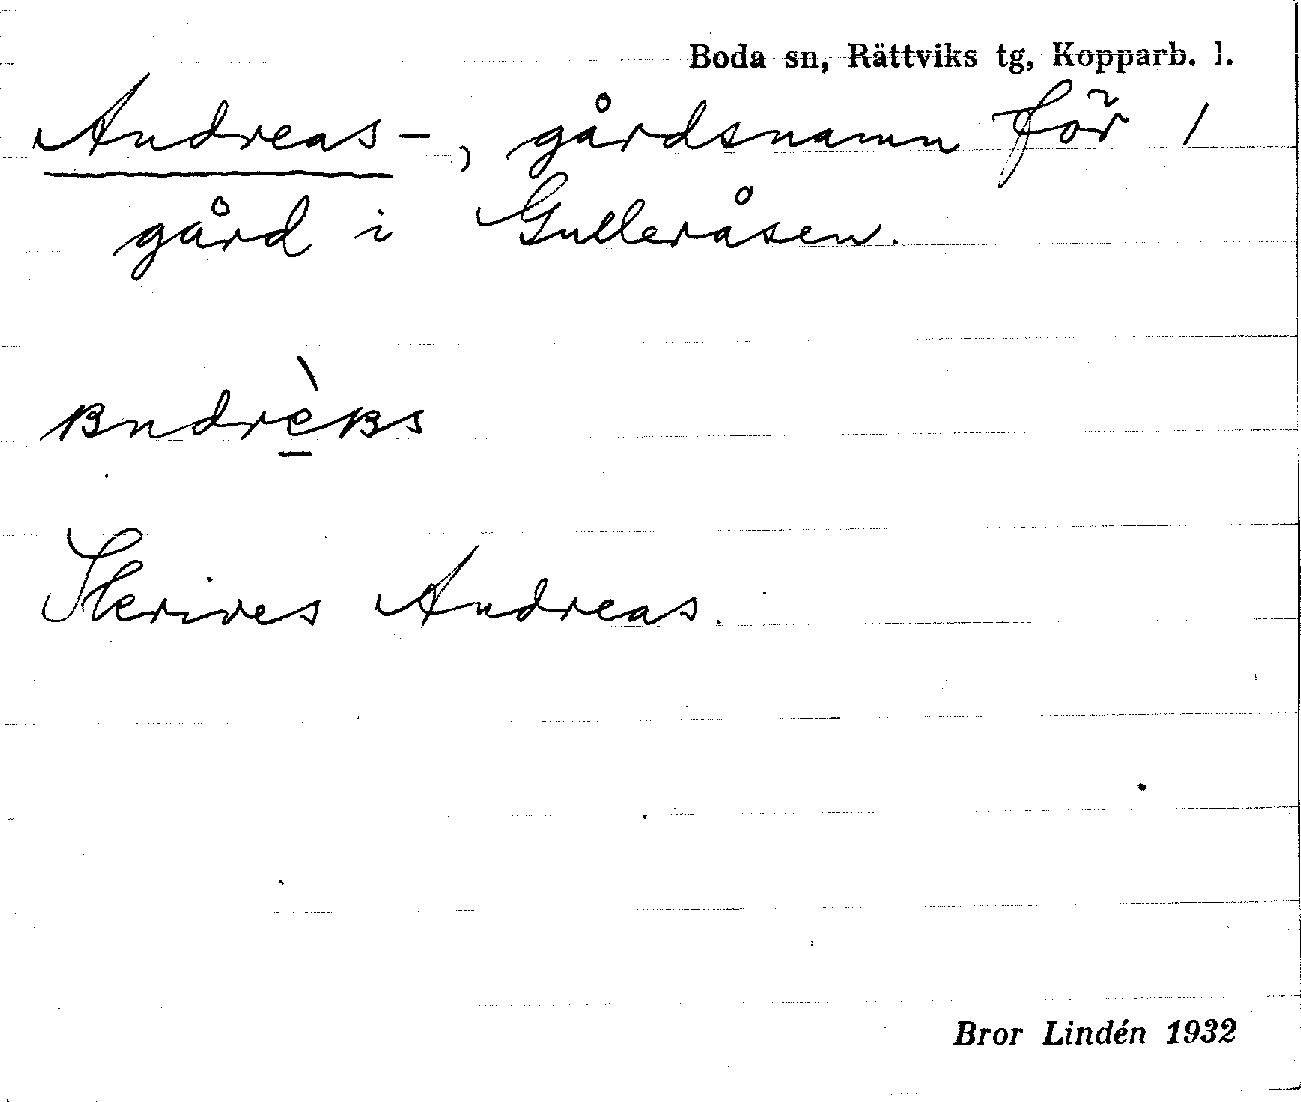 Boda sn, Rättviks tg, Kopparb. l.
Andreas-, gårdsnamn för 1
gård i Gulleråsen.
andrè̲as
Skrives Andreas.
Bror Lindén 1932